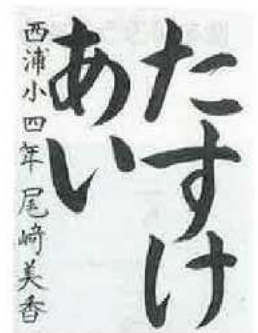 たすけ
あい
西浦小四年尾﨑美香